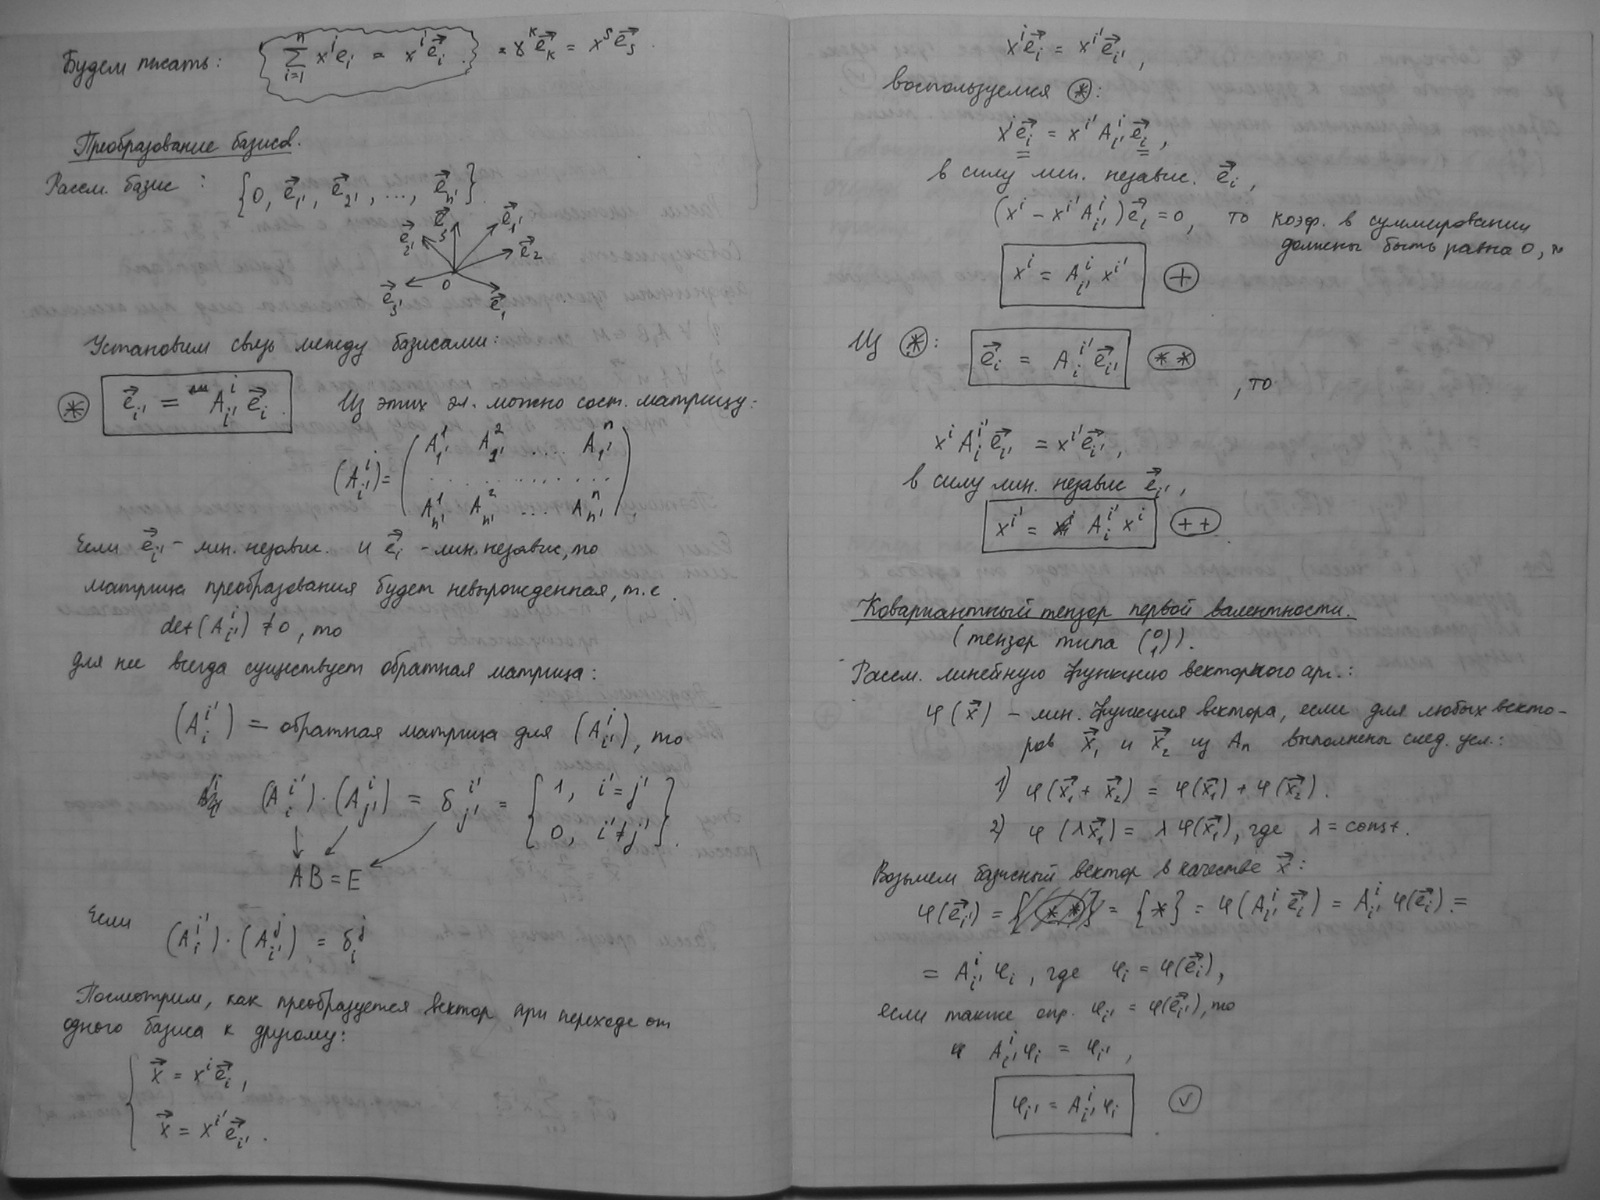 Будем писать: ∑_{i=1}^{n} x^i e_i = x^i e⃗_i = x^k e⃗_k = x^s e⃗_s.
Преобразование базисов.
Рассм. базис: {0, e⃗_{1'}, e⃗_{2'}, ..., e⃗_{n'}}.
e⃗_{2'} e⃗_3 e⃗_{1'}
e⃗_2
e⃗_{3'} 0 e⃗_1
Установим связь между базисами:
(*) e⃗_{i'} = A^i_{i'} e⃗_i. Из этих эл. можно сост. матрицу:
(A^i_{i'}) = ( A^1_{1'} A^2_{1'} ... A^n_{1'}
. . . . . . . . . .
A^1_{n'} A^2_{n'} ... A^n_{n'} ).
Если e⃗_{i'} – лин. независ. и e⃗_i – лин. независ, то
матрица преобразования будет невырожденная, т.е.
det(A^i_{i'}) ≠ 0, то
для нее всегда существует обратная матрица:
(A^{i'}_i) = обратная матрица для (A^i_{i'}), то
(A^{i'}_i)·(A^i_{j'}) = δ^{i'}_{j'} = { 1, i'=j'
0, i'≠j' }.
AB = E
Если
(A^{i'}_i)·(A^j_{i'}) = δ^j_i
Посмотрим, как преобразуется вектор при переходе от
одного базиса к другому:
{ x⃗ = x^i e⃗_i,
x⃗ = x^{i'} e⃗_{i'}.
x^i e⃗_i = x^{i'} e⃗_{i'},
воспользуемся (*):
x^i e⃗_i = x^{i'} A^i_{i'} e⃗_i,
в силу лин. независ. e⃗_i,
(x^i – x^{i'} A^i_{i'}) e⃗_i = 0, то коэф. в суммировании
должны быть равна 0, и
x^i = A^i_{i'} x^{i'} (+)
Из (*): e⃗_i = A^{i'}_i e⃗_{i'} (**)
, то
x^i A^{i'}_i e⃗_{i'} = x^{i'} e⃗_{i'},
в силу лин. независ e⃗_{i'},
x^{i'} = A^{i'}_i x^i (++)
Ковариантный тензор первой валентности.
(тензор типа (0 1)).
Рассм. линейную функцию векторного арг.:
φ(x⃗) – лин. функция вектора, если для любых векто-
ров x⃗_1 и x⃗_2 из A_n выполнены след. усл.:
1) φ(x⃗_1 + x⃗_2) = φ(x⃗_1) + φ(x⃗_2).
2) φ(λx⃗_1) = λφ(x⃗_1), где λ = const.
Возьмем базисный вектор в качестве x⃗:
φ(e⃗_{i'}) = {**} = {*} = φ(A^i_{i'} e⃗_i) = A^i_{i'} φ(e⃗_i) =
= A^i_{i'} φ_i, где φ_i = φ(e⃗_i),
если также опр. φ_{i'} = φ(e⃗_{i'}), то
и A^i_{i'} φ_i = φ_{i'},
φ_{i'} = A^i_{i'} φ_i (v)